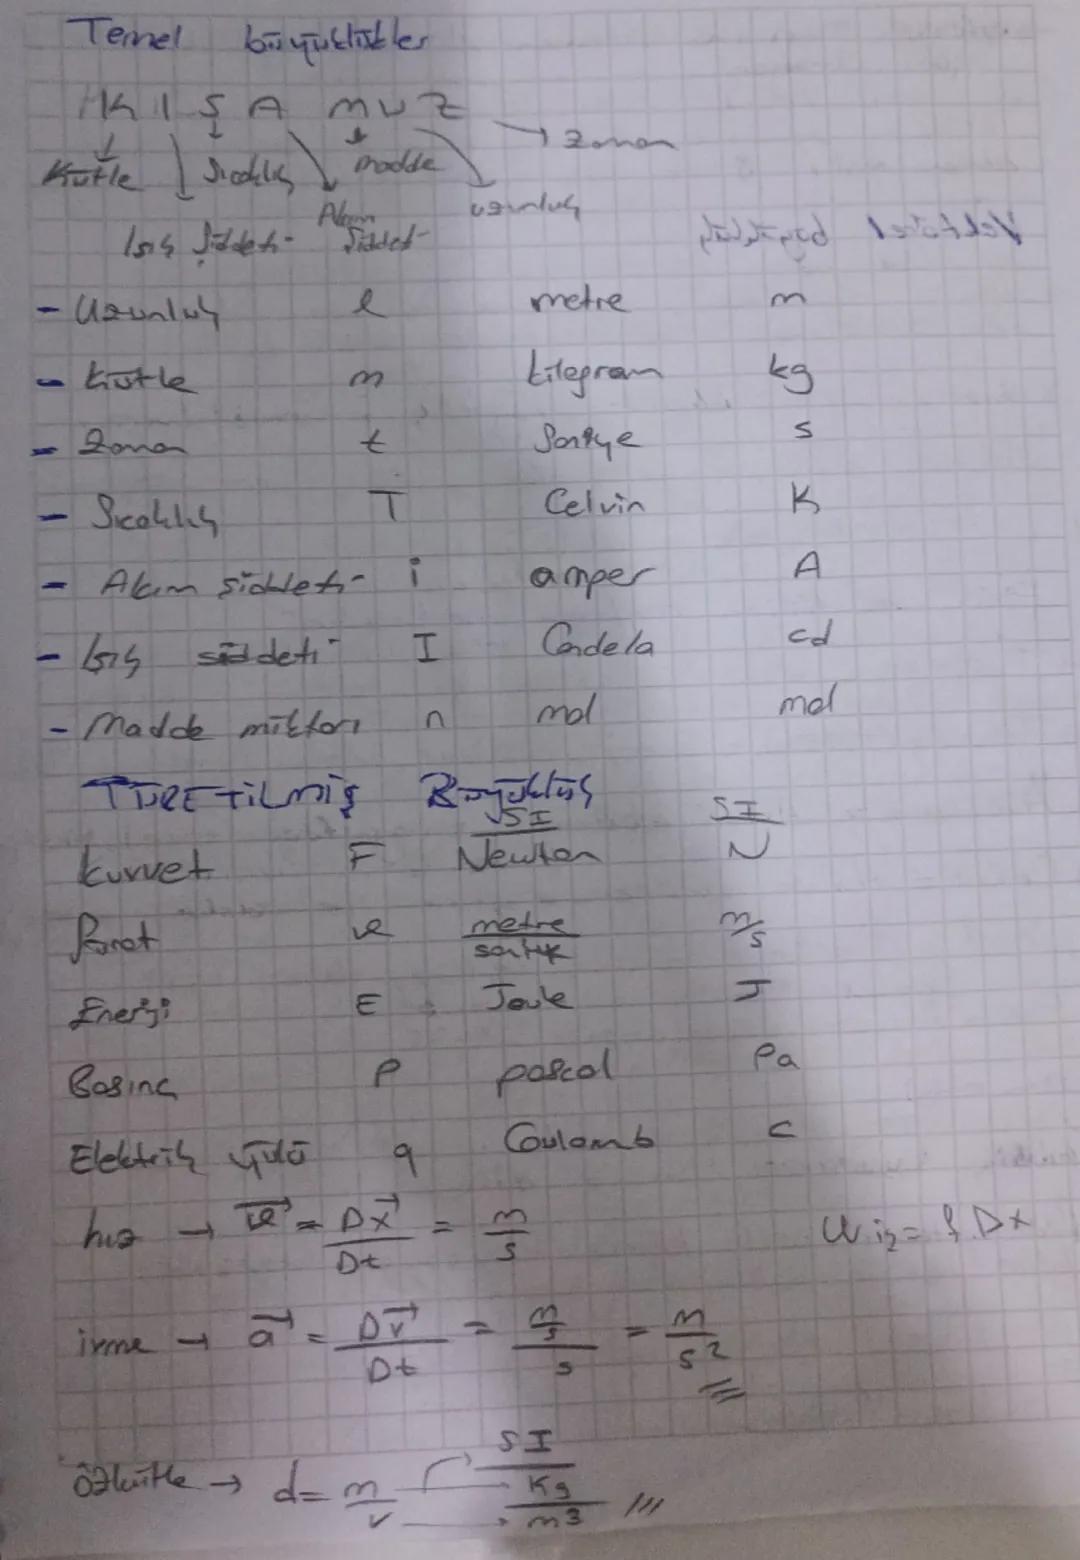 Temel büyüklükler
K I S A M U Z
Kütle Sıcaklık madde → Zaman
Işık Şiddeti Akım Şiddeti uzunluk
- Uzunluk l metre m
- kütle m kilogram kg
- Zaman t Saniye s
- Sıcaklık T Celvin K
- Akım şiddeti i amper A
- Işık şiddeti I Candela cd
- Madde miktarı n mol mol
TÜRETiLmiş Büyüklük
SI SI
kuvvet F Newton N
Sürat v metre/saniye m/s
Enerji E Joule J
Basınç P pascal Pa
Elektrik yükü q Coulomb C
hız → v⃗ = Dx⃗/Dt = m/s
ivme → a⃗ = Dv⃗/Dt = m/s/s = m/s²
SI
özkütle → d = m/v → kg/m3